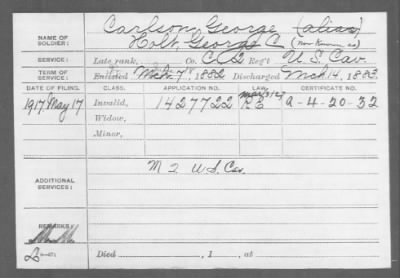 NAME OF SOLDIER: Carlson, George (alias)
Holt, George C (Now Known as)
SERVICE: Late rank, Co. C, 2 Reg't U.S. Cav.
TERM OF SERVICE: Enlisted Mch 7, 1882 Discharged Mch 14, 1883
DATE OF FILING. CLASS. APPLICATION NO. LAW. CERTIFICATE NO.
1917 May 17 Invalid, 1427722 A-4-20-32
Widow,
Minor,
ADDITIONAL SERVICES: M 2 U.S. Cav.
REMARKS:
Died , 1 , at